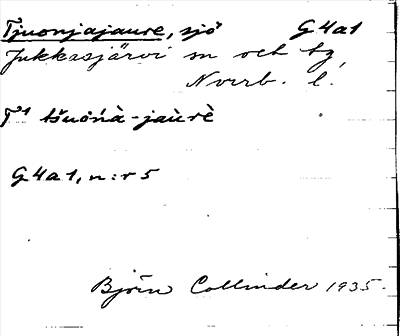 Tjuonjajaure, sjö G4a1
Jukkasjärvi sn och tg,
Nverb. l.
tšuońà-jaùrè
G4a1, n:r 5
Björn Collinder 1935.